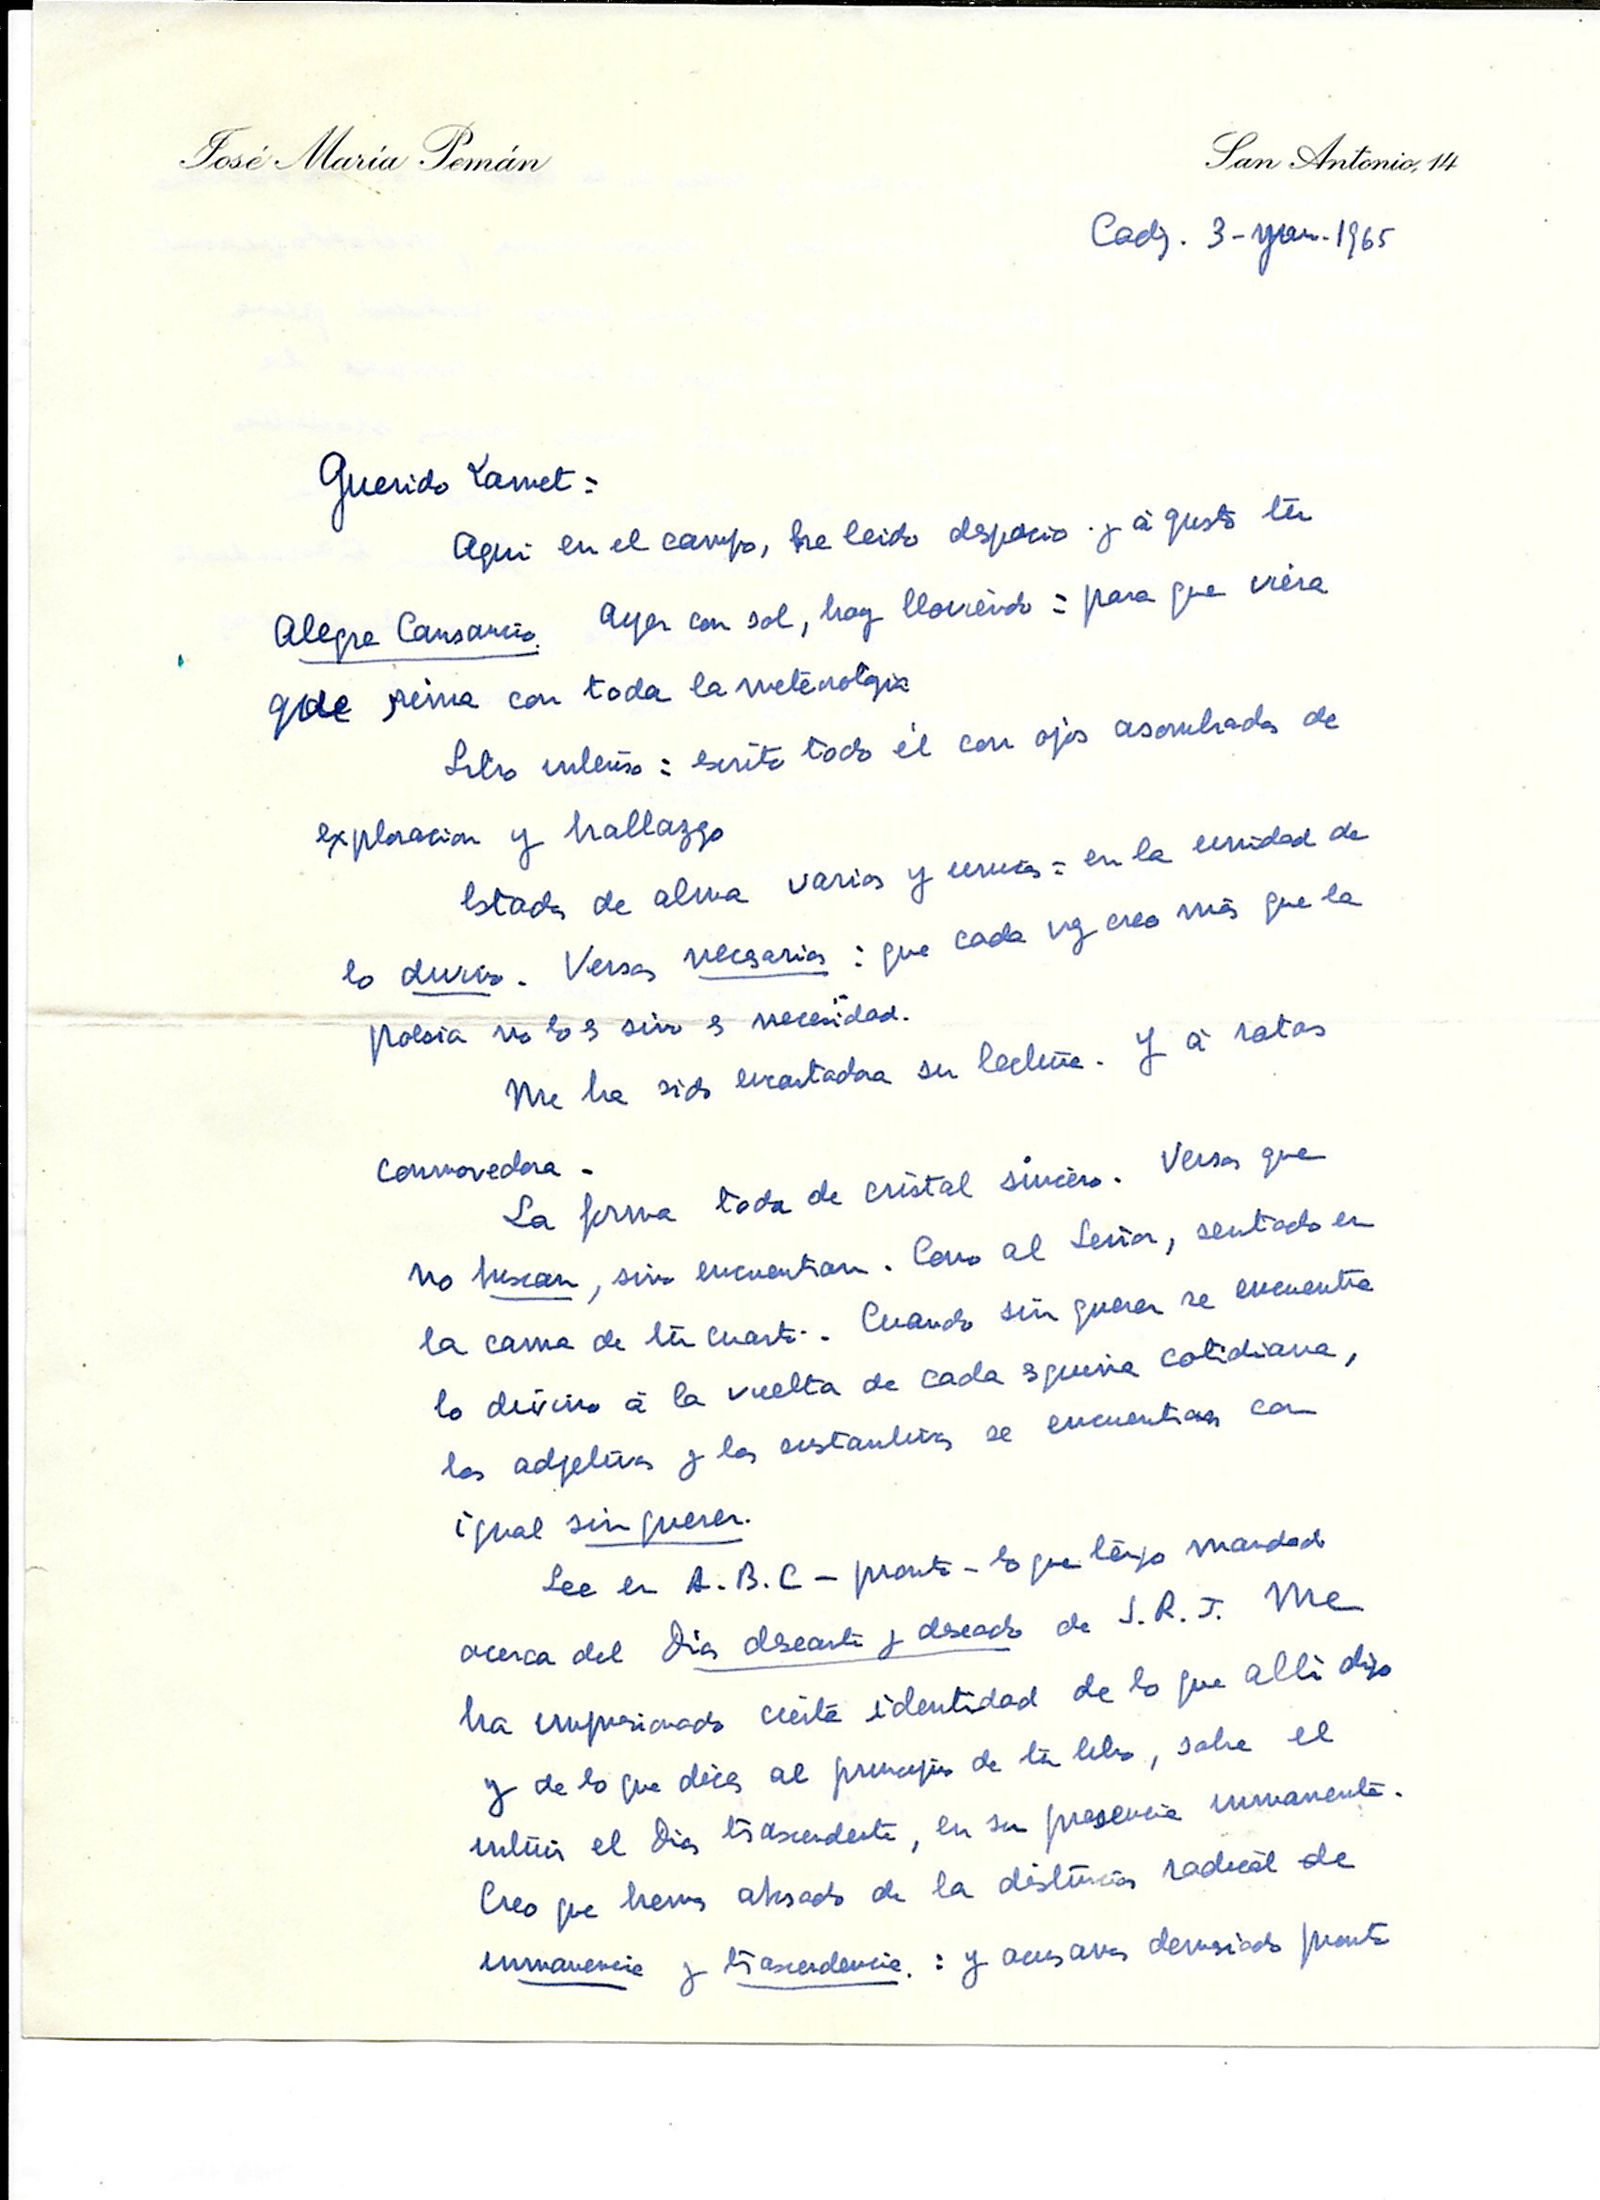 José María Pemán
San Antonio, 14
Cadiz. 3- 1965
Querido Lamet:
Aqui en el campo, he leido despacio y á gusto tu
Alegre Cansancio. Ayer con sol, hoy lloviendo = para que viera
que rima con toda la meteorologia
Libro intenso = escrito todo él con ojos asombrados de
exploracion y hallazgo
Estados de alma varios y unicos = en la unidad de
lo divino. Versos necesarios : que cada vez creo más que la
poesia no lo es sino es necesidad.
Me ha sido encantadora su lectura. Y á ratos
conmovedora -
La forma toda de cristal sincero. Versos que
no buscan, sino encuentran. Como al Señor, sentado en
la cama de tu cuarto. Cuando sin querer se encuentra
lo divino á la vuelta de cada esquina cotidiana,
los adjetivos y los sustantivos se encuentran con
igual sin querer.
Lee en A.B.C - pronto - lo que tengo mandado
acerca del Dios deseante y deseado de J.R.J. Me
ha impresionado cierta identidad de lo que alli digo
y de lo que dices al principio de tu libro, sobre el
intuir el Dios trascendente, en su presencia inmanente.
Creo que hemos abusado de la distincion radical de
inmanencia y trascendencia. : y acusamos demasiado pronto